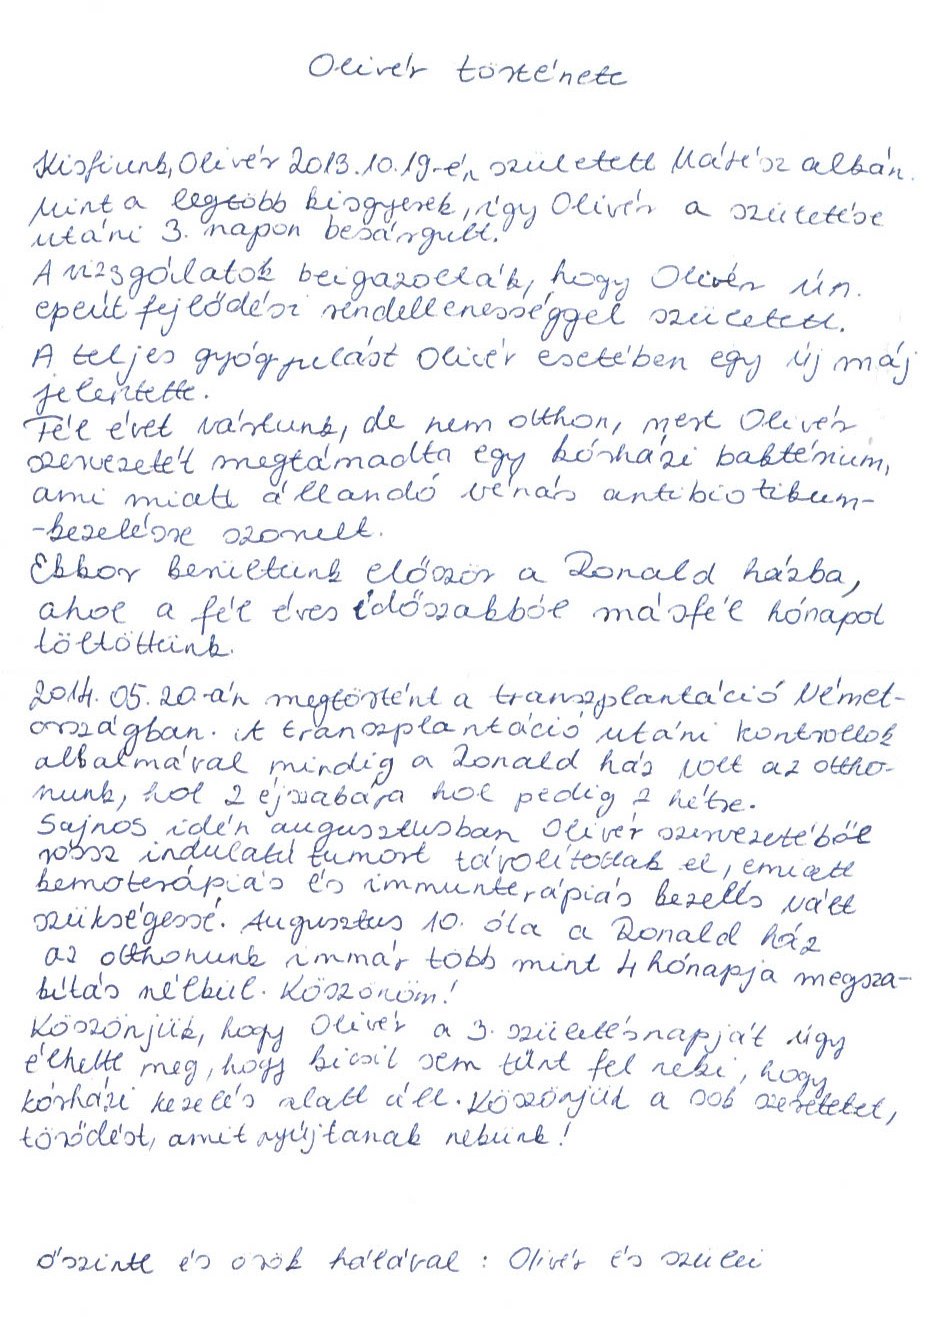 Olivér története
Kisfiunk, Olivér 2013.10.19-én született Mátészalkán.
Mint a legtöbb kisgyerek, úgy Olivér a születése
utáni 3. napon besárgult.
A vizsgálatok beigazolták, hogy Olivér ún.
epeút fejlődési rendellenességgel született.
A teljes gyógyulást Olivér esetében egy új máj
jelentette.
Fél évet vártunk, de nem otthon, mert Olivér
szervezetét megtámadta egy kórházi baktérium,
ami miatt állandó vénás antibiotikum-
-kezelésre szorult.
Ekkor kerültünk először a Ronald házba,
ahol a fél éves időszakból másfél hónapot
töltöttünk.
2014.05.20-án megtörtént a transzplantáció Német-
országban. A transzplantáció utáni kontrollok
alkalmával mindig a Ronald ház volt az ottho-
nunk, hol 2 éjszakára hol pedig 2 hétre.
Sajnos idén augusztusban Olivér szervezetéből
rossz indulatú tumort távolítottak el, emiatt
kemoterápiás és immunterápiás kezelés vált
szükségessé. Augusztus 10. óta a Ronald ház
az otthonunk immár több mint 4 hónapja megsza-
kítás nélkül. Köszönöm!
Köszönjük, hogy Olivér a 3. születésnapját úgy
élhette meg, hogy kicsit sem tűnt fel neki, hogy
kórházi kezelés alatt áll. Köszönjük a sok szeretetet,
törődést, amit nyújtanak nekünk!
Őszinte és örök hálával: Olivér és szülei